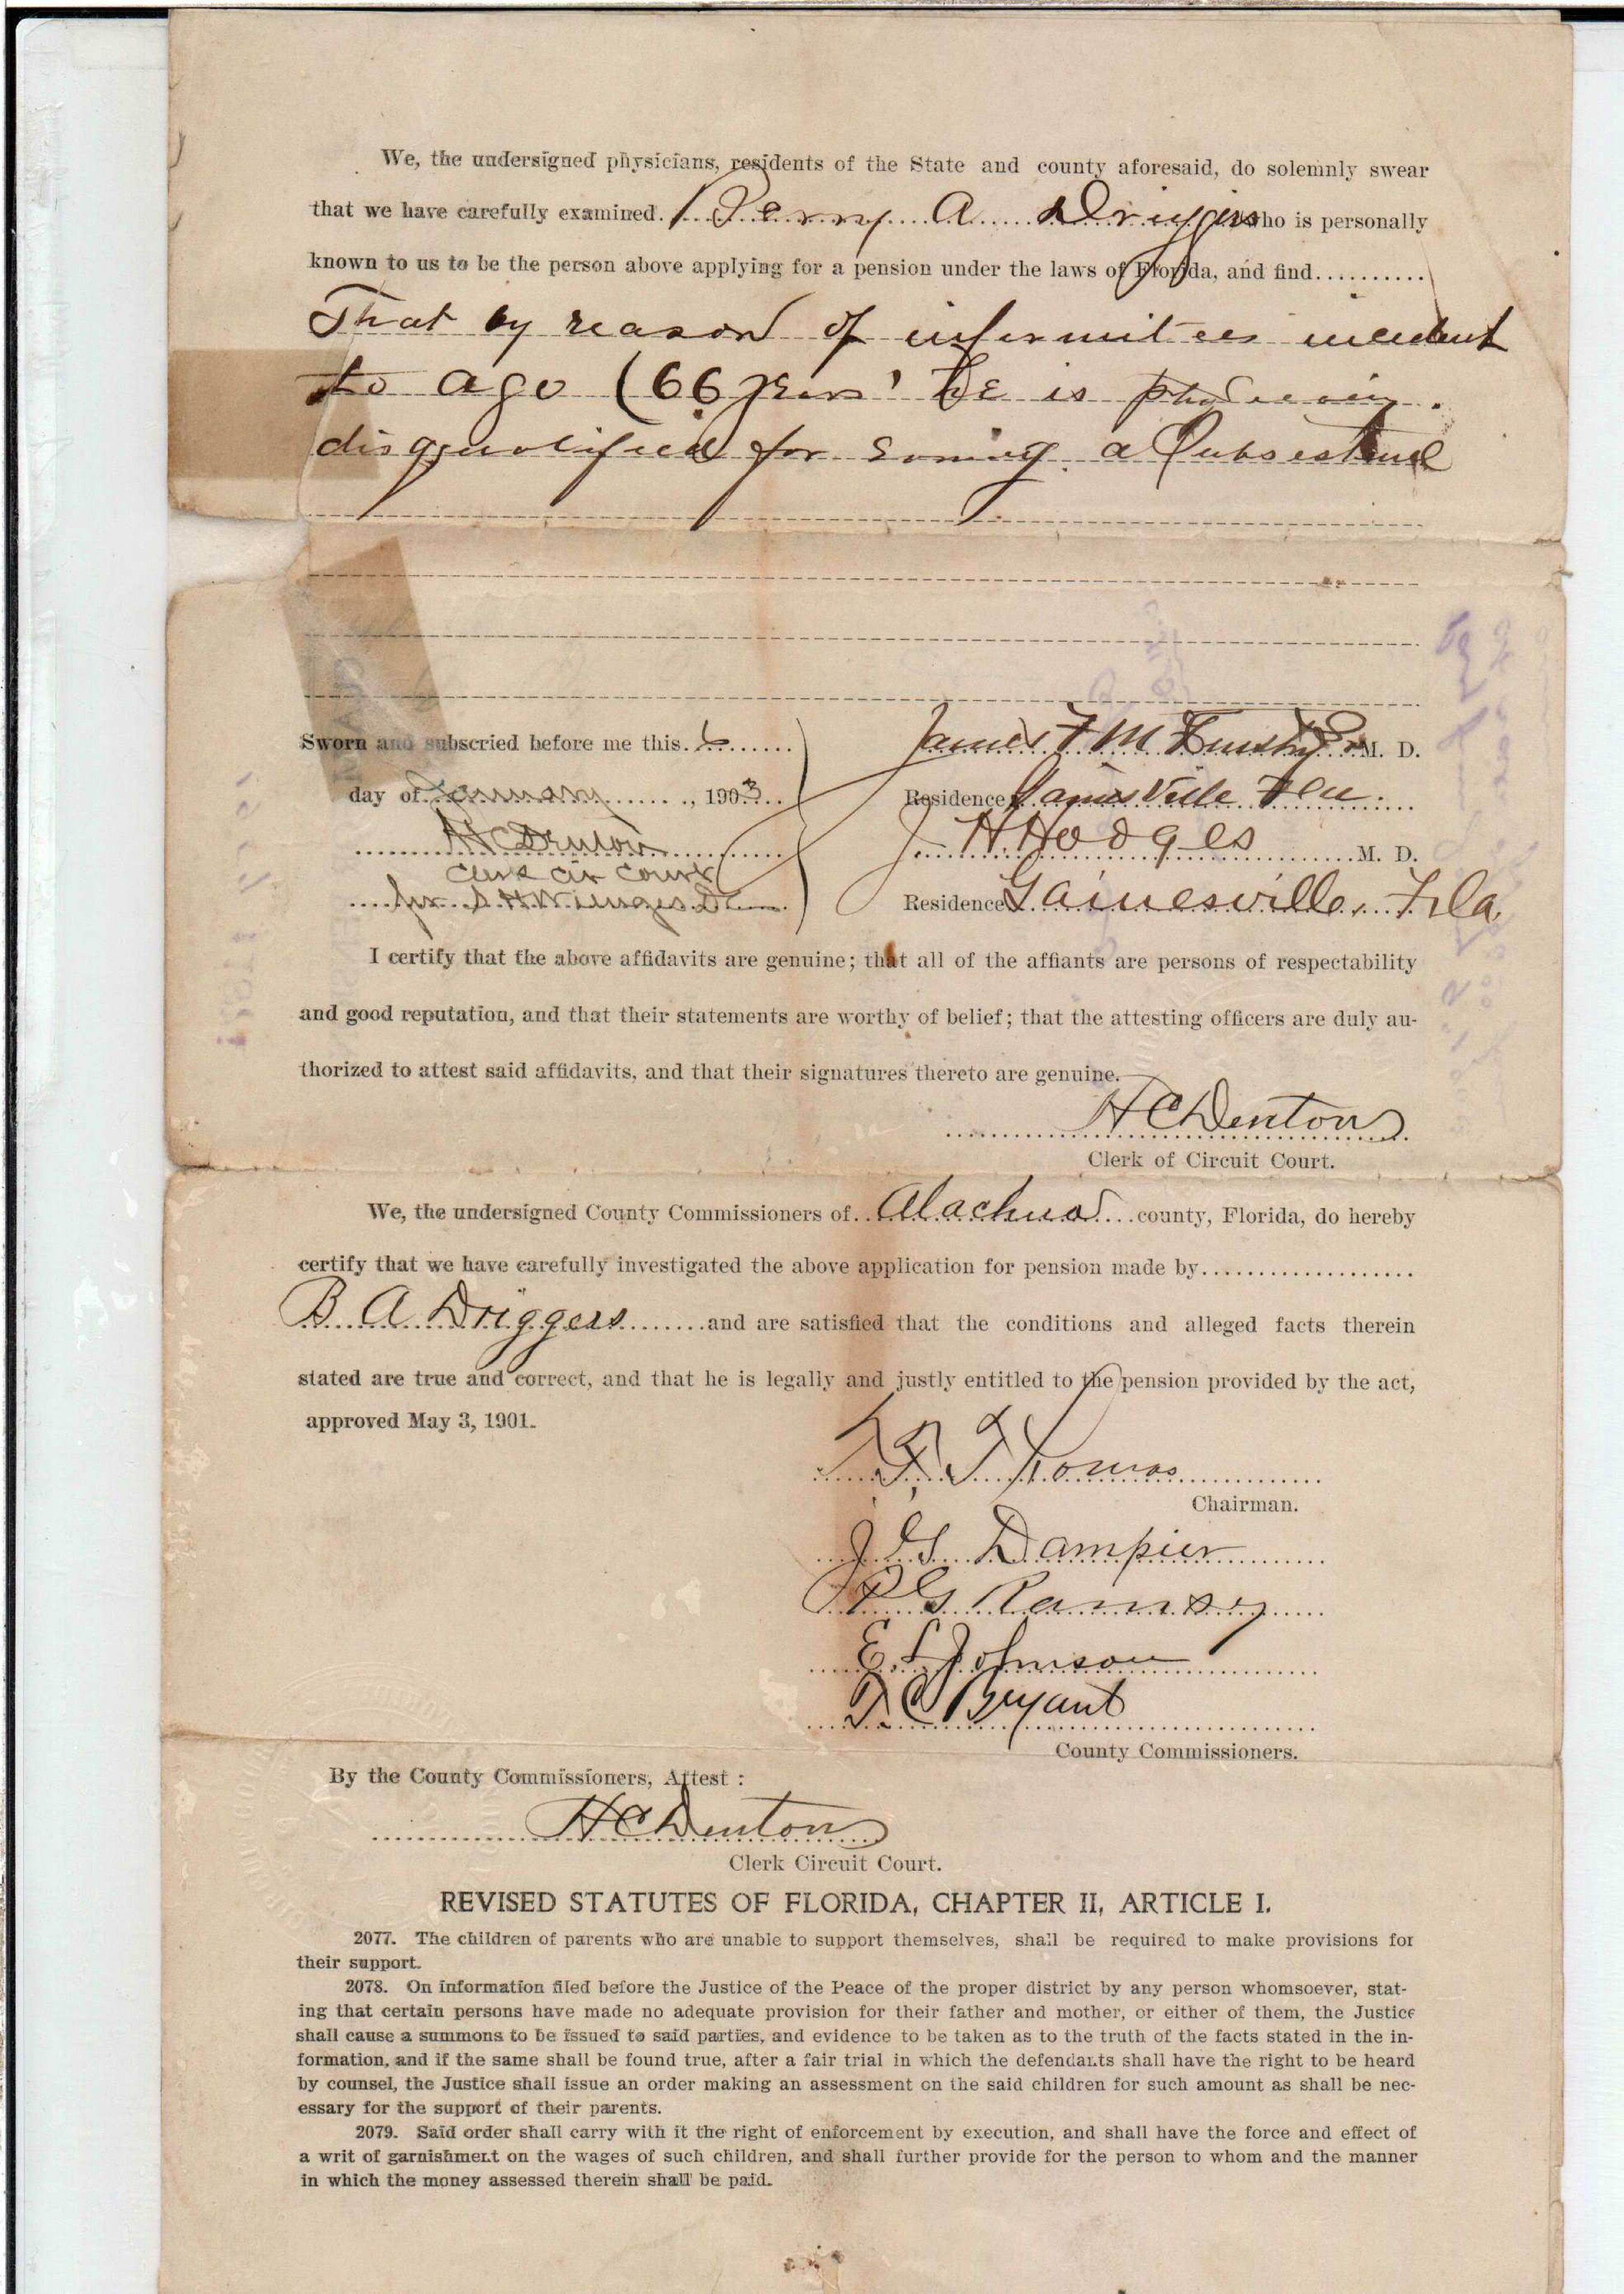 We, the undersigned physicians, residents of the State and county aforesaid, do solemnly swear
that we have carefully examined. Perry A Driggers who is personally
known to us to be the person above applying for a pension under the laws of Florida, and find..........
That by reason of infirmities incident
to age (66 years) he is
disqualified for a Subsistence
Sworn and subscried before me this. 6
day of January, 1903
H C Denton
Clerk Cir Court
James F McKinstry Sr M. D.
Residence Gainesville Fla.
J H Hodges M. D.
Residence Gainesville, Fla
I certify that the above affidavits are genuine; that all of the affiants are persons of respectability
and good reputation, and that their statements are worthy of belief; that the attesting officers are duly au-
thorized to attest said affidavits, and that their signatures thereto are genuine.
H C Denton
Clerk of Circuit Court.
We, the undersigned County Commissioners of Alachua county, Florida, do hereby
certify that we have carefully investigated the above application for pension made by....................
B A Driggers and are satisfied that the conditions and alleged facts therein
stated are true and correct, and that he is legally and justly entitled to the pension provided by the act,
approved May 3, 1901.
Thomas
Chairman.
J G Dampier
P G Ramsey
E L Johnson
T C Bryant
County Commissioners.
By the County Commissioners, Attest :
H C Denton
Clerk Circuit Court.
REVISED STATUTES OF FLORIDA, CHAPTER II, ARTICLE I.
2077. The children of parents who are unable to support themselves, shall be required to make provisions for
their support.
2078. On information filed before the Justice of the Peace of the proper district by any person whomsoever, stat-
ing that certain persons have made no adequate provision for their father and mother, or either of them, the Justice
shall cause a summons to be issued to said parties, and evidence to be taken as to the truth of the facts stated in the in-
formation, and if the same shall be found true, after a fair trial in which the defendants shall have the right to be heard
by counsel, the Justice shall issue an order making an assessment on the said children for such amount as shall be nec-
essary for the support of their parents.
2079. Said order shall carry with it the right of enforcement by execution, and shall have the force and effect of
a writ of garnishment on the wages of such children, and shall further provide for the person to whom and the manner
in which the money assessed therein shall be paid.